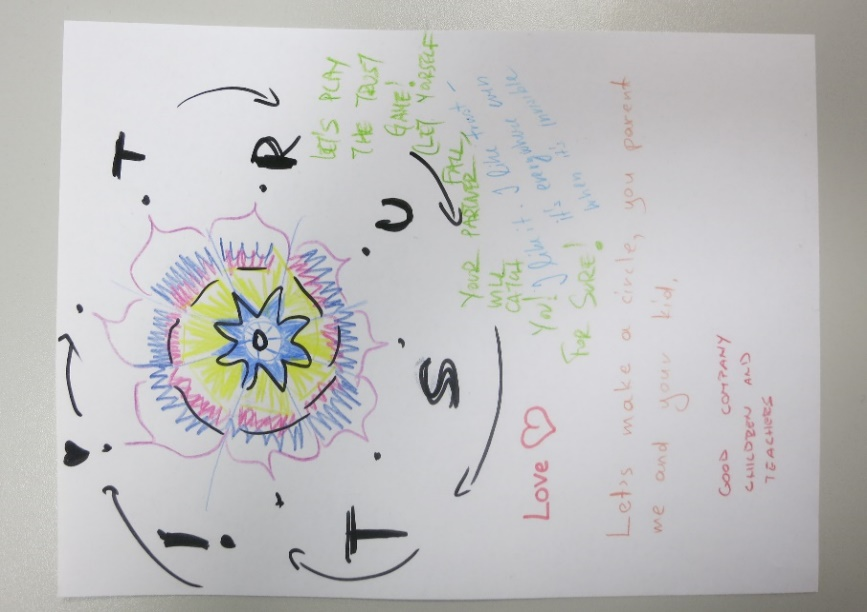 T
R
U
S
T
!
LET'S PLAY
THE TRUST
GAME!
(LET YOURSELF
FALL,
YOUR PARTNER
WILL
CATCH
YOU!
FOR SURE!
I like it. I like trust -
it's everywhere even
when it's invisible
Love
Let's make a circle, you parent
me and your kid,
GOOD COMPANY
CHILDREN AND
TEACHERS